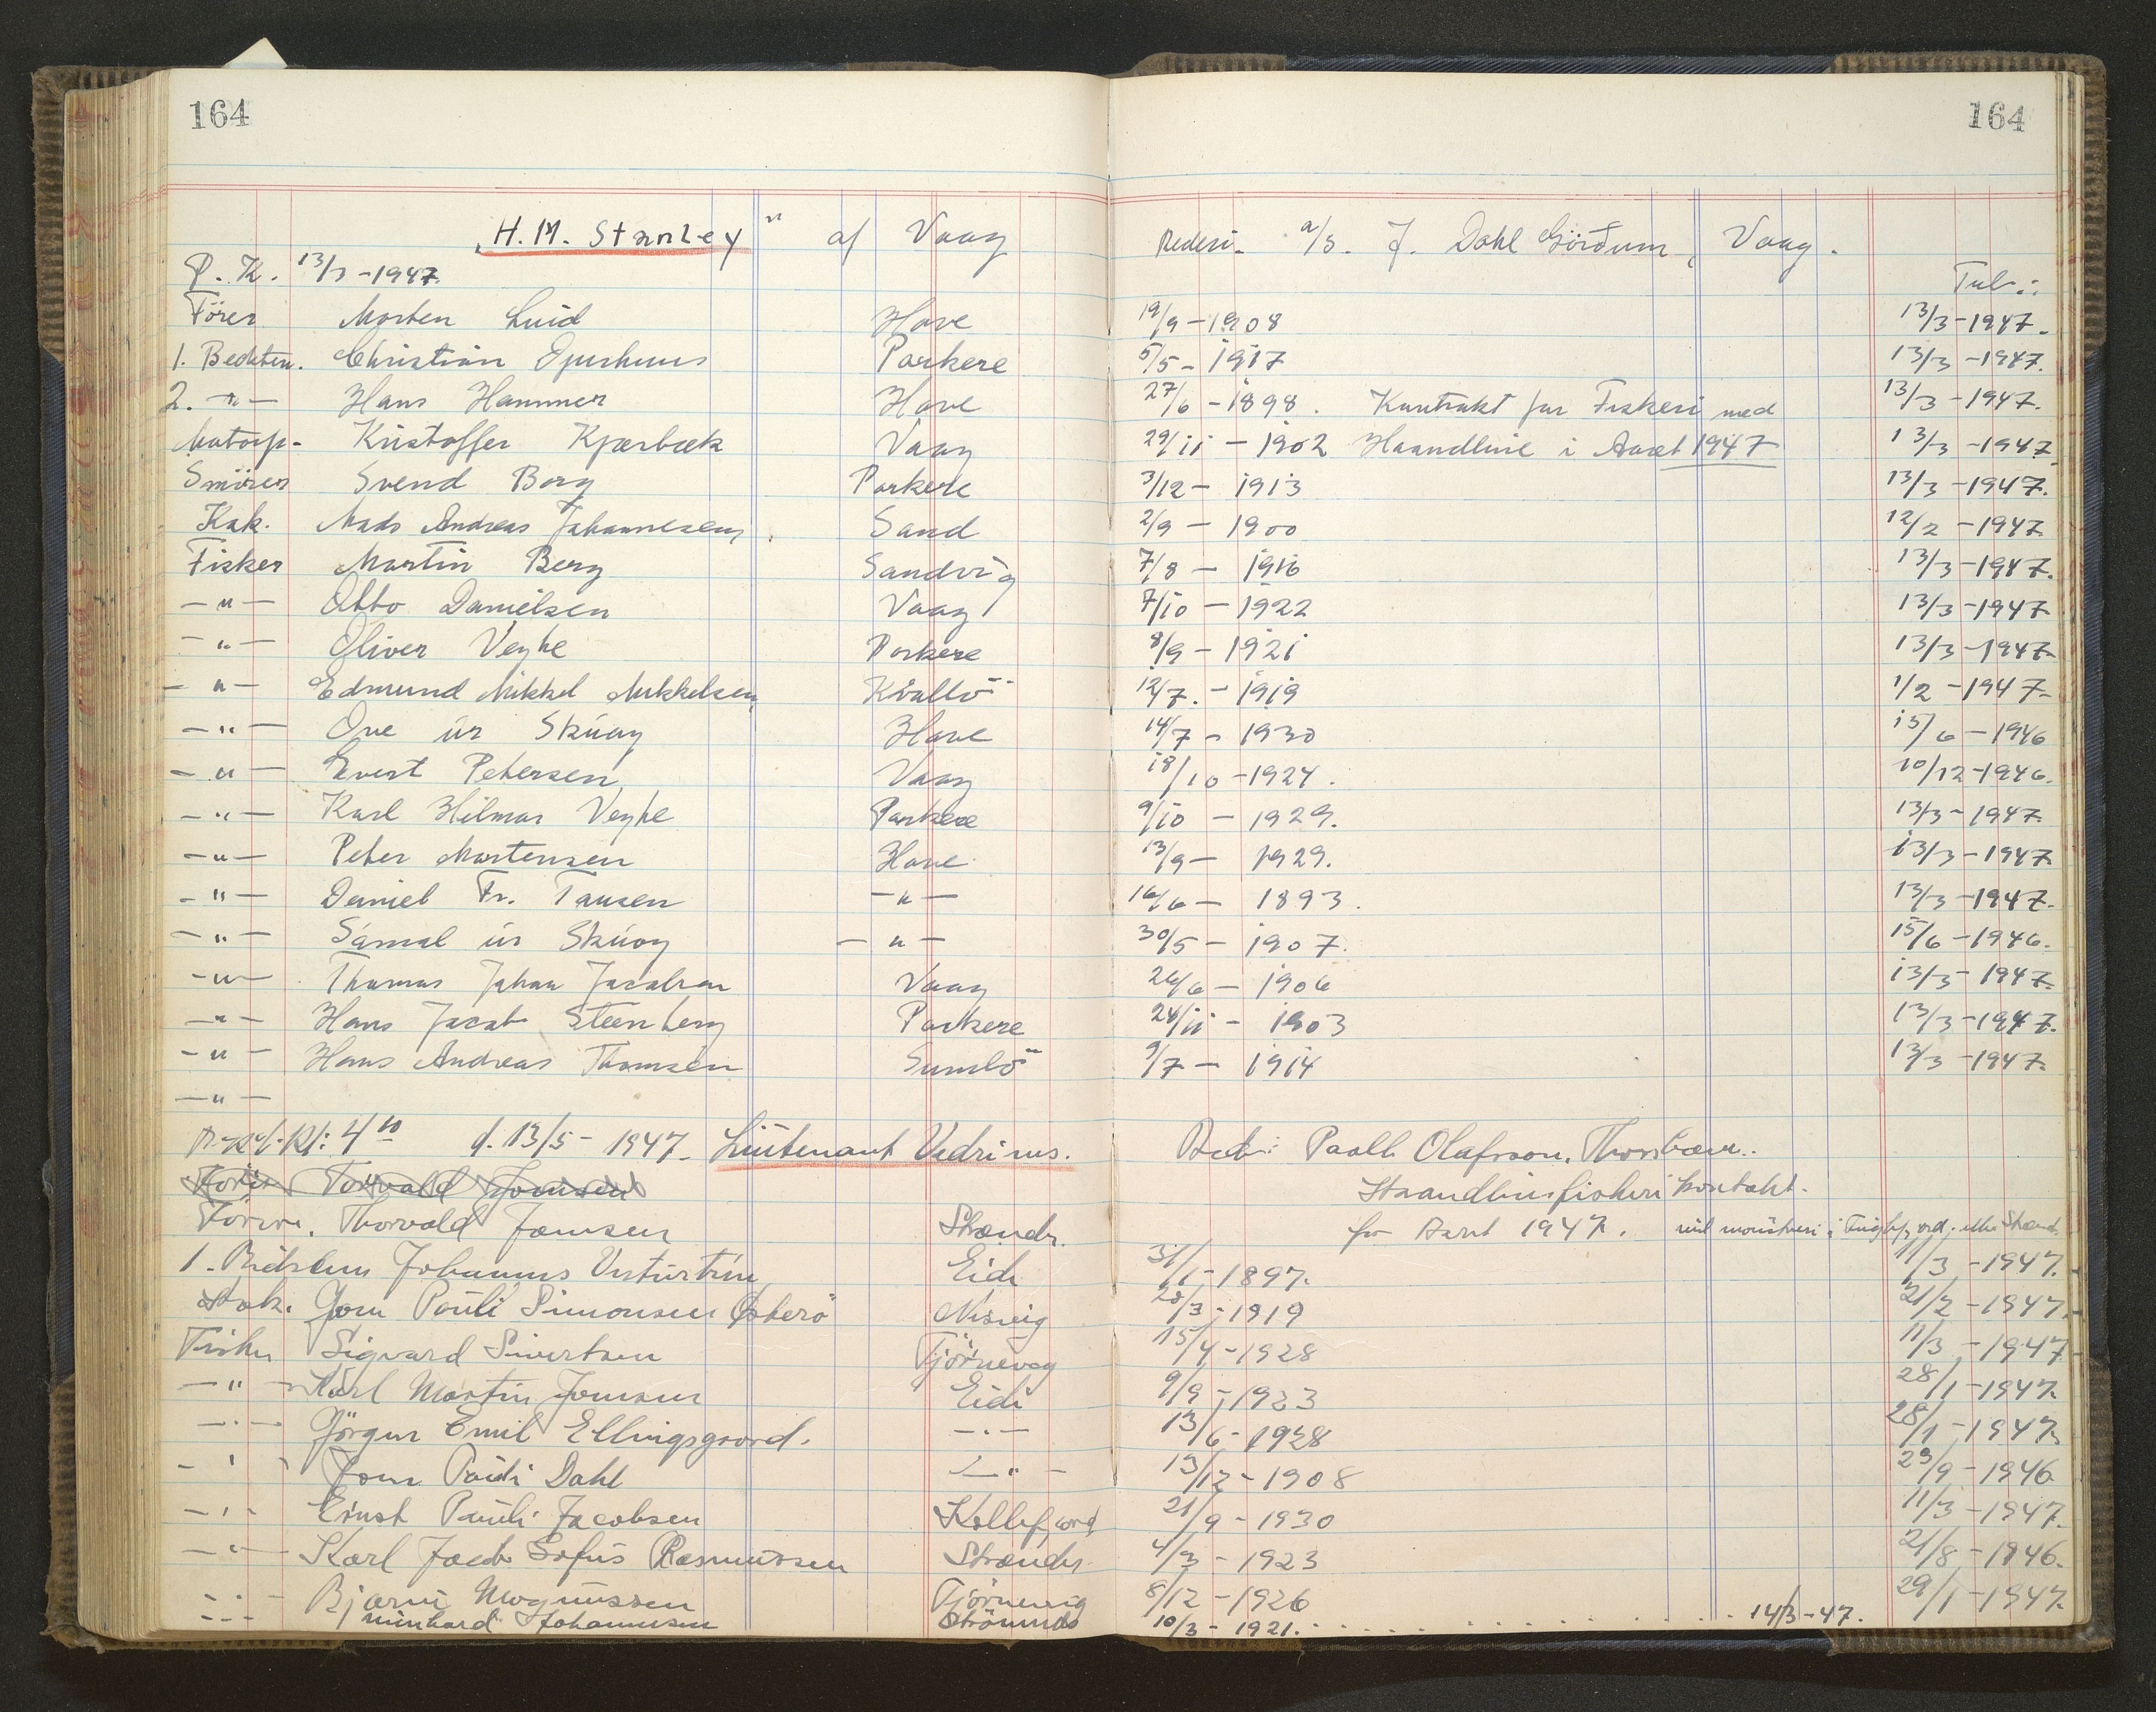 164 164
„H. M. Stanley" af Vaag Rederi- a/s. J. Dahl Görðum, Vaag.
P. K. 13/3-1947. Tub.:
Förer Morten Luid Hove 19/9-1908 13/3-1947.
1. Bedstm. Christian Ejurhuus Porkere 5/5-1917 13/3-1947.
2. -"- Hans Hammer Hove 27/6-1898. Kontrakt for Fiskeri med 13/3-1947.
Motorp- Kristoffer Kjærbæk Vaag 29/11-1902 Haandline i Aaret 1947 13/3-1947
Smörer Svend Borg Porkere 3/12-1913 13/3-1947.
Kok. Mads Andreas Johannesen, Sand 2/9-1900 12/2-1947
Fisker Martin Berg Sandvig 7/8-1916 13/3-1947.
-"- Otto Danielsen Vaag 7/10-1922 13/3-1947
-"- Oliver Veyhe Porkere 8/9-1921 13/3-1947
-"- Edmund Mikkel Mikkelsen, Kvalbö 12/7.-1919 1/2-1947-
-"- Ove úr Skúoy Hove 14/7-1930 15/6-1946
-"- Evert Petersen Vaag 18/10-1924. 10/12-1946.
-"- Karl Hilmar Veyhe Porkere 9/10-1929. 13/3-1947.
-"- Peter Mortensen Hove 13/9-1929. 13/3-1947
-"- Daniel Fr. Tausen -"- 16/6-1893. 13/3-1947.
-"- Sámal úr Skúoy -"- 30/5-1907. 15/6-1946.
-"- Thomas Johan Jacobsen Vaag 26/6-1906 13/3-1947.
-"- Hans Jacob Steenberg Porkere 24/11-1903 13/3-1947.
-"- Hans Andreas Thomsen Sumbö 9/7-1914 13/3-1947.
-"-
Kl: 4 10 d. 13/5-1947. Lüutenant Vedrins. Red: Poall Olafsson, Thorshavn.
Torvald Joensen Haandlinefiskeri kontakt.
Förere. Thorvald Joensen Strendr. for Aaret 1947.
1. Johannes Vesturtún Eidi 31/1-1897. 11/3-1947.
Kok. Joen Pauli Simonsen Österö Nesvig 20/3-1919 21/2-1947.
Fisker Sigvard Sivertsen Tjörnevig 15/4-1928 11/3-1947
-"- Karl Martin Joensen Eidi 9/9-1923 28/1-1947.
-"- Jörgen Emil Ellingsgaard. -"- 13/6-1928 28/1-1947.
-"- Joen Dahl -"- 13/12-1908 23/9-1946
-"- Ernst Pauli Jacobsen Kollefjord 21/9-1930 11/3-1947.
-"- Karl Jacob Sofus Rasmussen Strendr. 4/3-1923 21/8-1946.
-"- Bjarni Magnussen Tjörnevig 8/12-1926 29/1-1947.
-"- Meinhard Johannesen Strömnes 10/3-1921. . . . . . . . . 14/3-47.